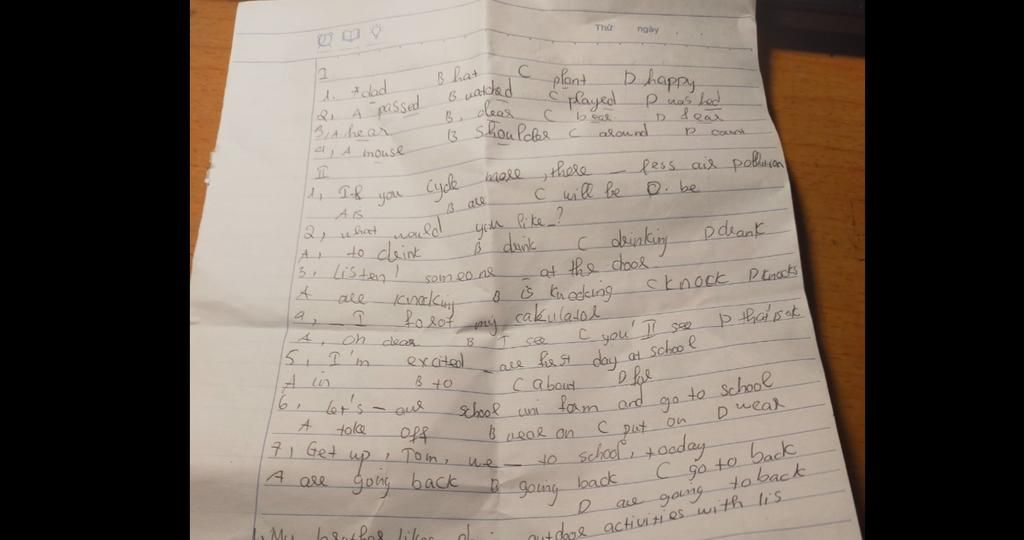 Thứ ngày
I
1. A dad B hat C plant D happy
2, A passed B watched C played D washed
3, A hear B, clear C bear D fear
4, A mouse B shoulder C around D count
II
1, If you cycle more, there _ less air pollution
A is B are C will be D. be
2, what would you like _?
A, to drink B drink C drinking D drank
3, Listen! someone _ at the door
A are knocking B is knocking C knock D knocks
4, _ I forgot my calculator
A, oh dear B I see C you'll see D that's ok
5, I'm excited _ our first day at school
A in B to C about D for
6, Let's _ our school uni form and go to school
A take off B wear on C put on D wear
7, Get up, Tom, we _ to school, tooday
A are going back B going back C go to back
D are going to back
My brother likes outdoor activities with his